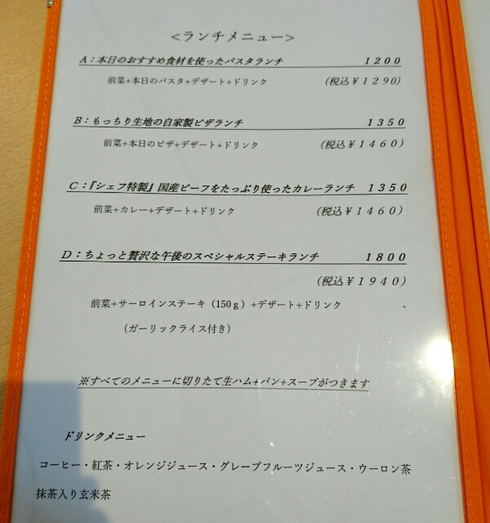 <ランチメニュー>
A：本日のおすすめ食材を使ったパスタランチ 1200
前菜+本日のパスタ+デザート+ドリンク (税込¥1290)
B：もっちり生地の自家製ピザランチ 1350
前菜+本日のピザ+デザート+ドリンク (税込¥1460)
C：『シェフ特製』国産ビーフをたっぷり使ったカレーランチ 1350
前菜+カレー+デザート+ドリンク (税込¥1460)
D：ちょっと贅沢な午後のスペシャルステーキランチ 1800
(税込¥1940)
前菜+サーロインステーキ（150g）+デザート+ドリンク
(ガーリックライス付き)
※すべてのメニューに切りたて生ハム+パン+スープがつきます
ドリンクメニュー
コーヒー・紅茶・オレンジジュース・グレープフルーツジュース・ウーロン茶
抹茶入り玄米茶